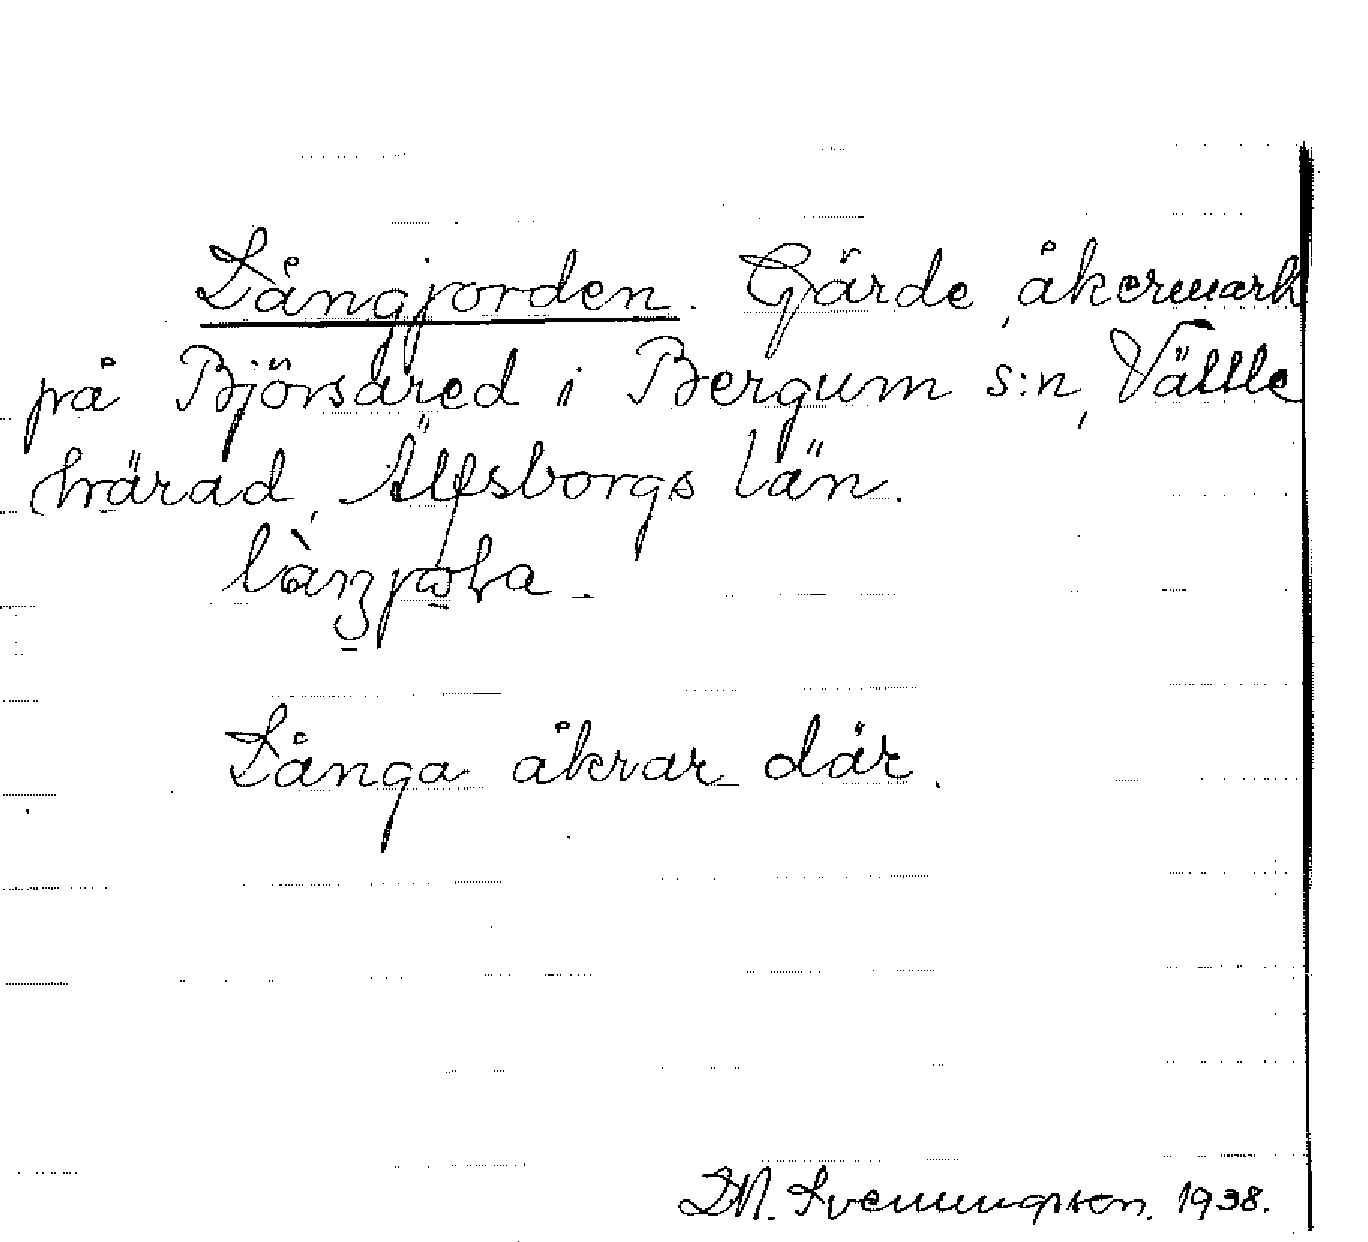 Långjorden. Gärde, åkermark
på Björsared i Bergum s:n, Vättle
härad, Älfsborgs län.
Långa åkrar där.
Svenningson. 1938.